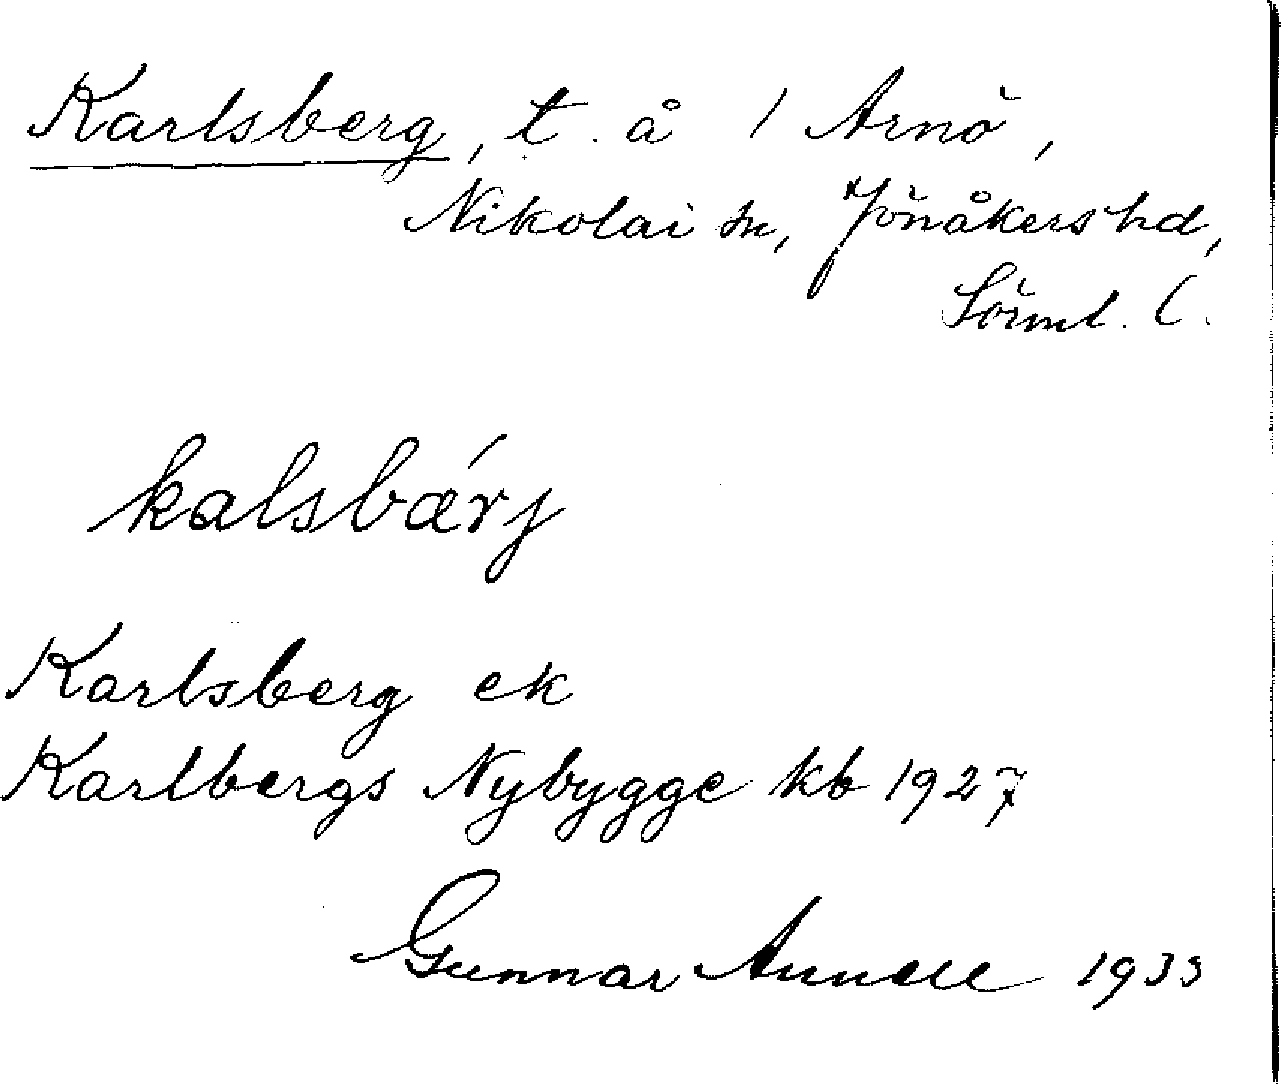 Karlsberg, t. å 1 Arnö,
Nikolai sn, Jönåkers hd,
Sörml. l.
kalsbǽrj
Karlsberg ek
Karlbergs Nybygge kb 1927
Gunnar 1933